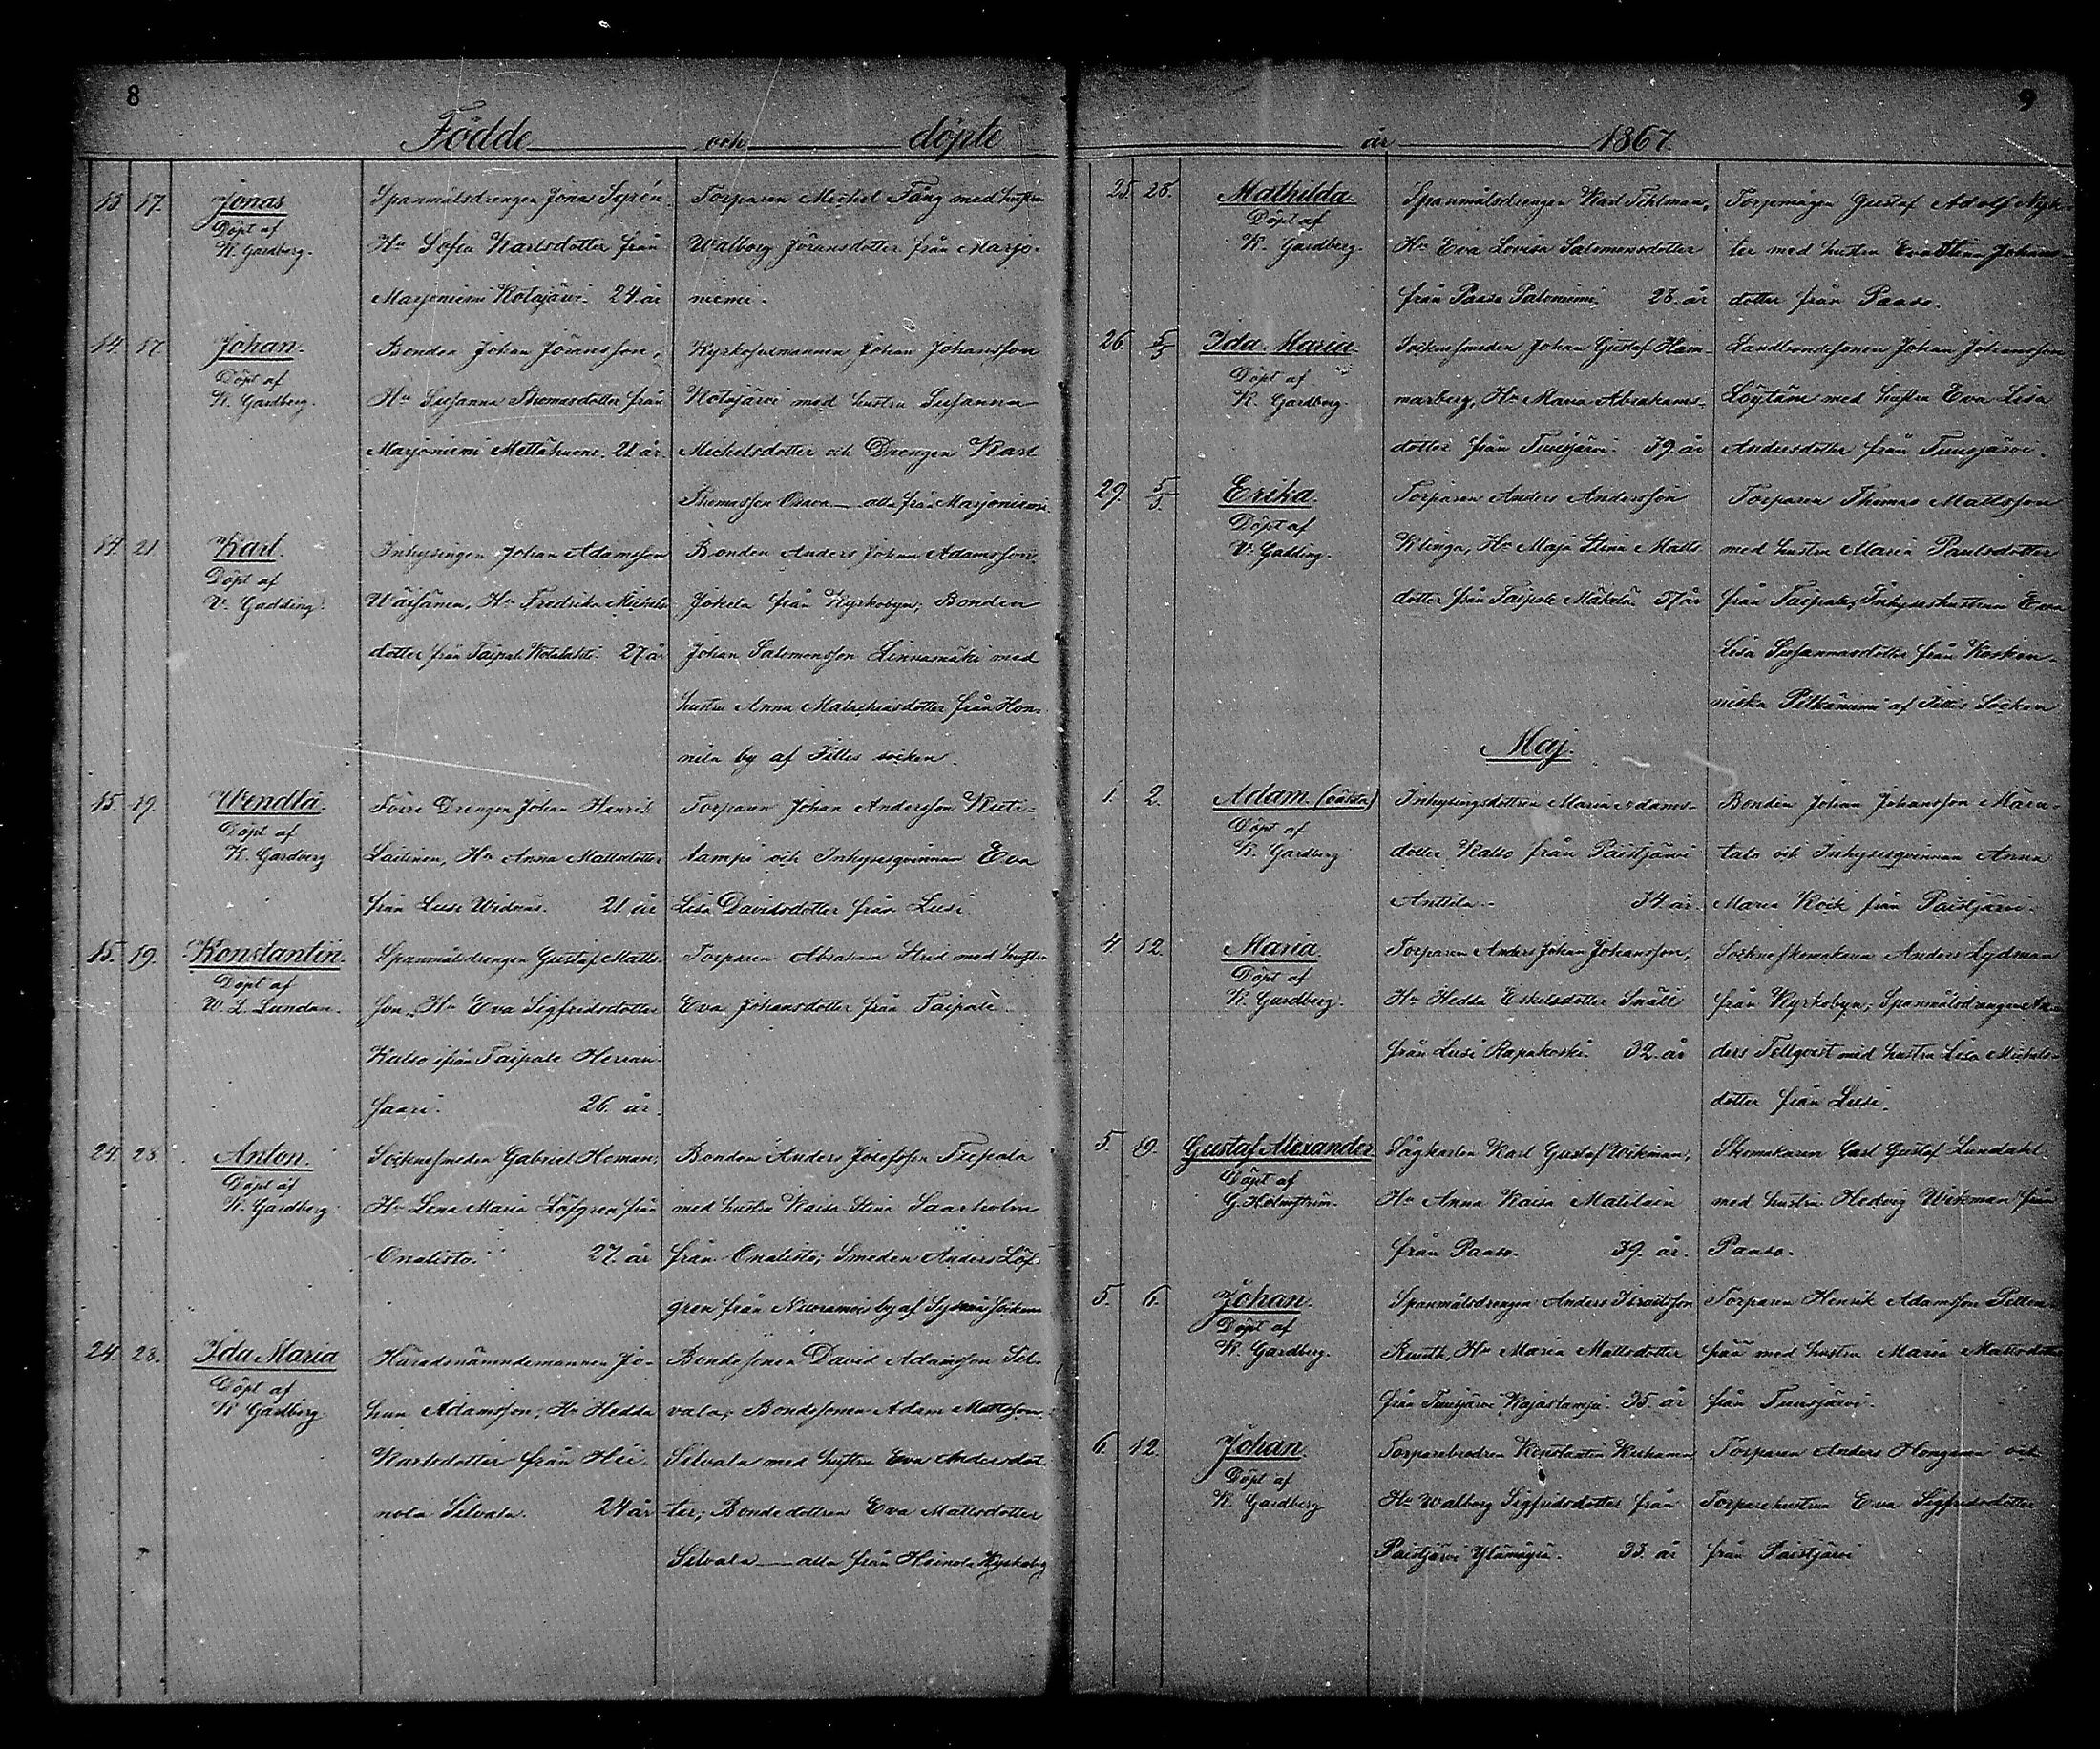 8
Födde och döpte
13. 17. Jonas
Döpt af
K. Gardberg.
Spanmålsdrengen Jonas
Hu Sofia Karlsdotter från
Marjoniemi Kotajärvi. 24. år
Torparen Michel Fång med hustru
Walborg Jöransdotter från Marjo-
niemi.
14. 17. Johan.
Döpt af
K. Gardberg.
Bonden Johan Jöransson,
Hu Susanna Thomasdotter från
Marjoniemi 21. år.
Johan Johansson
Kotajärvi med hustru Susanna
Michelsdotter och Drengen Karl
Thomasson alla från Marjoniemi.
14. 21. Karl.
Döpt af
V. Gadding.
Inhysingen Johan Adamsson
Wäisänen, Hu Fredrika Michels-
dotter från Taipale 27 år
Bonden Anders Johan Adamsson
Jokela från Kyrkobyn; Bonden
Johan Salomonsson Linnamäki med
hustru Anna Malachiasdotter från
by af Jittis socken.
15. 19. Wendla.
Döpt af
K. Gardberg
Drengen Johan Henrik
Laitinen, Hu Anna Mattsdotter
från Lusi 21. år
Torparen Johan Andersson
lampi och Inhysesqvinnan Eva
Lisa Davidsdotter från Lusi
15. 19. Konstantin.
Döpt af
W. L. Lunden.
Spanmålsdrengen Gustaf Matts-
son, Hu Eva Sigfridsdotter
Kalso ifrån Taipale
saari. 26. år.
Torparen Abraham Strid med hustru
Eva Johansdotter från Taipale.
24. 28. Anton.
Döpt af
K. Gardberg
Socknesmeden Gabriel Homan,
Hu Lena Maria Löfgren från
Onalisto. 27. år
Bonden Anders Josefsson
med hustru Kaisa Stina Saarholm
från Onalisto; Smeden Anders Löf-
gren från by af socken
24. 28. Ida Maria
Döpt af
K. Gardberg
Häradsnämndemannen Jo-
han Adamsson, Hu Hedda
Karlsdotter från Hei-
nola Silvala. 24 år
Bondesonen David Adamsson Sil-
vala; Bondesonen Adam Mattsson
Silvala med hustru Eva Andersdot-
ter; Bondedottren Eva Mattsdotter
Silvala alla från Heinola Kyrkoby
9
år 1867.
25. 28. Mathilda.
Döpt af
K. Gardberg.
Spanmålsdrengen Karl Fihlman,
Hu Eva Lovisa Salomonsdotter
från Paaso Paloniemi. 28. år
Gustaf Adolf
med hustru Eva Stina Johans-
dotter från Paaso.
26. 5/5 Ida Maria.
Döpt af
K. Gardberg.
Socknesmeden Johan Gustaf Ham-
marberg, Hu Maria Abrahams-
dotter från Tuusjärvi. 39. år
Landbondesonen Johan Johansson
Löytäin med hustru Eva Lisa
Andersdotter från Tuusjärvi.
29. 5/5 Erika.
Döpt af
V. Gadding.
Torparen Anders Andersson
Klinga, Hu Maja Stina Matts-
dotter från Taipale Mäkelä 37 år
Torparen Thomas Mattsson
med hustru Maria Paulsdotter
från Taipale; Inhyseshustrun Eva
Lisa Susannasdotter från Kosken-
niska Pilkänmi af Jittis Socken
Maj.
1. 2. Adam. (oäkta)
Döpt af
K. Gardberg
Inhysingsdottren Maria Adams-
dotter Kalso från Paistjärvi
Anttila. 34. år.
Bonden Johan Johansson
tala och Inhysesqvinnan Anna
Maria Kock från Paistjärvi.
4. 12. Maria.
Döpt af
K. Gardberg.
Torparen Anders Johan Johansson,
Hu Hedda Eskelsdotter Småll
från Lusi Rapakoski. 32. år
Sockneskomakaren Anders Lydman
från Kyrkobyn; Spanmålsdrengen An-
ders Fellqvist med hustru Lisa Michels-
dotter från Lusi.
5. 19. Gustaf Alexander
Döpt af
G. Holmström.
Sågkarlen Karl Gustaf Wikman,
Hu Anna Kaisa Matilain
från Paaso. 39. år.
Skomakaren Carl Gustaf Lundahl
med hustru Hedvig Wikman från
Paaso.
5. 6. Johan.
Döpt af
K. Gardberg.
Spanmålsdrengen Anders Israelsson
Hu Maria Mattsdotter
från Tuusjärvi Rajaslampi. 35. år
Torparen Henrik Adamsson
med hustru Maria Mattsdotter
från Tuusjärvi.
6. 12. Johan.
Döpt af
K. Gardberg
Torparebrodren Konstantin
Hu Walborg Sigfridsdotter från
Paistjärvi 33. år
Torparen Anders och
Torparehustrun Eva Sigfridsdotter
från Paistjärvi